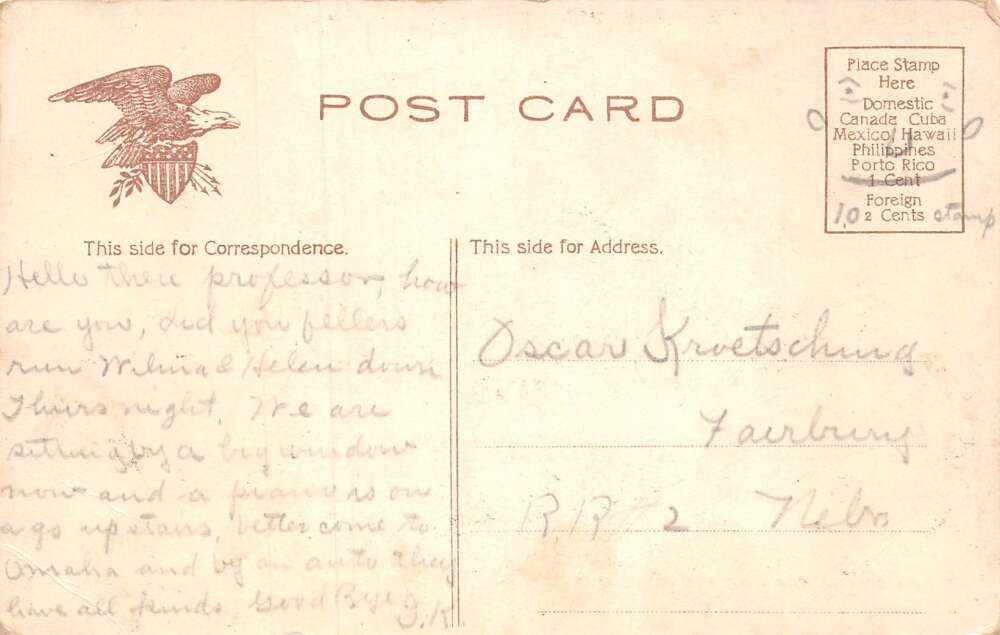 POST CARD
Place Stamp
Here
Domestic
Canada Cuba
Mexico, Hawaii
Philippines
Porto Rico
1 Cent
Foreign
2 Cents
10 stamp
This side for Correspondence.
Hello there professor, how
are you, did you fellers
run Wilma & Helen down
Thurs night, We are
sitting by a big window
now and a piano is on
a go up stairs, better come to
Omaha and by an auto they
have all kinds, Good Bye
J.K.
This side for Address.
Oscar Kroetsching
Fairbury
R.R. # 2 Nebr